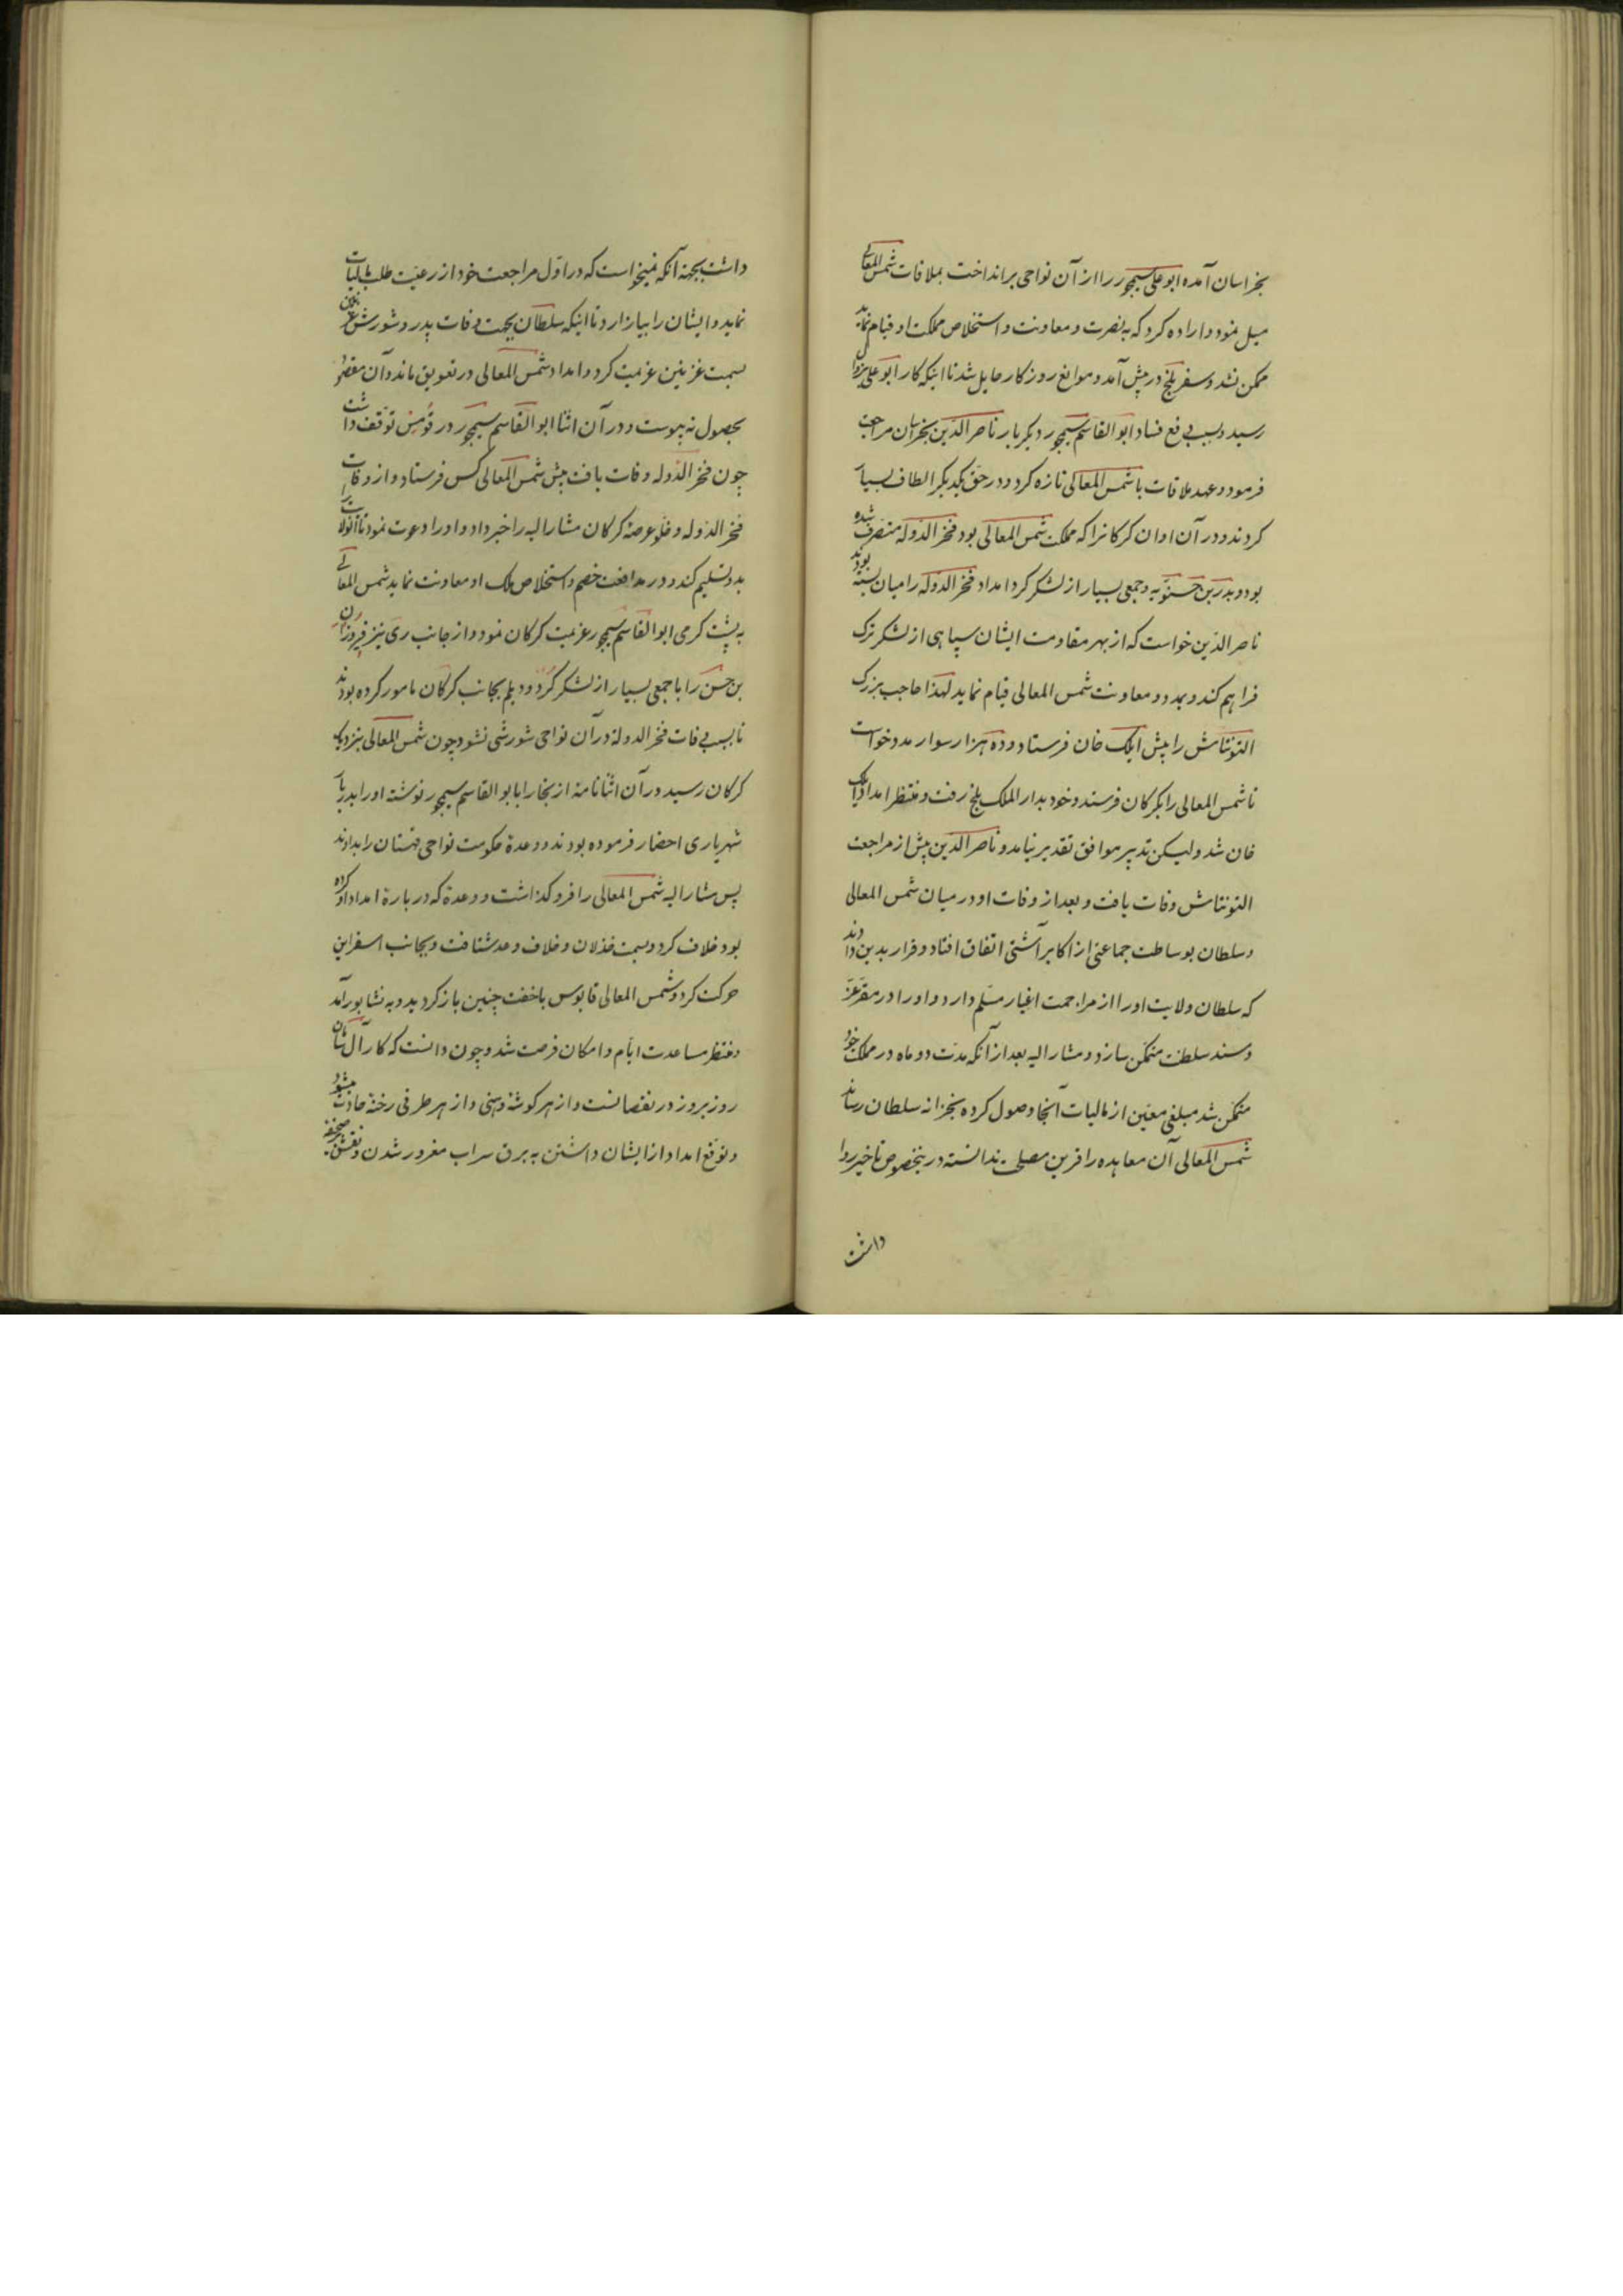 بخراسان آمده ابو علی سیمجور را از آن نواحی برانداخت بملاقات شمس المعالی
میل نمود و اراده کرد که به نصرت و معاونت و استخلاص مملکت او قیام نماید
ممکن نشد و سفر بلخ در پیش آمد و موانع روزکار حایل شد تا اینکه کار ابو علی
رسید و بسبب دفع فساد ابو القاسم سیمجور دیکر بار ناصر الدین بخراسان مراجعت
فرمود و عهد ملاقات با شمس المعالی تازه کرد و در حق یکدیکر الطاف بسیار
کردند و در آن اوان کرکانرا که مملکت شمس المعالی بود فخر الدوله متصرف شده
بود و بدر بن حسنویه و جمعی بسیار از لشکر کرد امداد فخر الدوله را میان بسته بودند
ناصر الدین خواست که از بهر مقاومت ایشان سپاهی از لشکر ترک
فراهم کند و بمدد و معاونت شمس المعالی قیام نماید لهذا حاجب بزرک
التونتاش را پیش ایلک خان فرستاد و ده هزار سوار مدد خواست
تا شمس المعالی را بکرکان فرستد و خود بدار الملک بلخ رفت و منتظر امداد ایلک
خان شد ولیکن تدبیر موافق تقدیر نیامد و ناصر الدین پیش از مراجعت
التونتاش وفات یافت و بعد از وفات او در میان شمس المعالی
و سلطان بوساطت جماعتی از اکابر آشتی اتفاق افتاد و قرار بدین دادند
که سلطان ولایت او را از مزاحمت اغیار مسلم دارد و او را در مقر عز
و مسند سلطنت متمکن سازد و مشار الیه بعد از آنکه مدت دو ماه در مملکت خود
متمکن شد مبلغی معین از مالیات آنجا وصول کرده بخزانه سلطان رساند
شمس المعالی آن معاهده را قرین مصلحت ندانسته درینخصوص تاخیر روا
داشت
داشت بجهة آنکه نمیخواست که در اول مراجعت خود از رعیت طلب مالیات
نماید و ایشان را بیازارد تا اینکه سلطان بجهت وفات پدر و شورش
بسمت غزنین عزیمت کرد و امداد شمس المعالی در تعویق ماند و آن مقصود
بحصول نه پیوست و در آن اثنا ابو القاسم سیمجور در قومس توقف داشت
چون فخر الدوله وفات یافت پیش شمس المعالی کس فرستاد و از وفات
فخر الدوله و خلو عرصۀ کرکان مشار الیه را خبر داد و او را دعوت نمود تا آنولایت را
بدو تسلیم کند و در مدافعت خصم و استخلاص ملک او معاونت نماید شمس المعالی
به پشت کرمی ابو القاسم سیمجور عزیمت کرکان نمود و از جانب ری نیز فیروزان
بن حسن را با جمعی بسیار از لشکر کرد و دیلم بجانب کرکان مامور کرده بودند
تا بسبب وفات فخر الدوله در آن نواحی شورشی نشود چون شمس المعالی بنزدیک
کرکان رسید در آن اثنا نامۀ از بخارا بابو القاسم سیمجور نوشته او را بدربار
شهریاری احضار فرموده بودند و وعدۀ حکومت نواحی قهستان را بدادند
پس مشار الیه شمس المعالی را فروکذاشت و وعدۀ که در بارۀ امداد او کرده
بود خلاف کرد و بسمت خذلان و خلاف وعد شتافت و بجانب اسفراین
حرکت کرد و شمس المعالی قابوس باخفت چنین بازکردید و به نشابور آمد
و منتظر مساعدت ایام و امکان فرصت شد و چون دانست که کار آل سامان
روز بروز در نقصانست و از هر کوشۀ وهنی و از هر طرفی رخنۀ حادث میشود
و توقع امداد از ایشان داشتن به برق سراب مغرور شدن و نقش